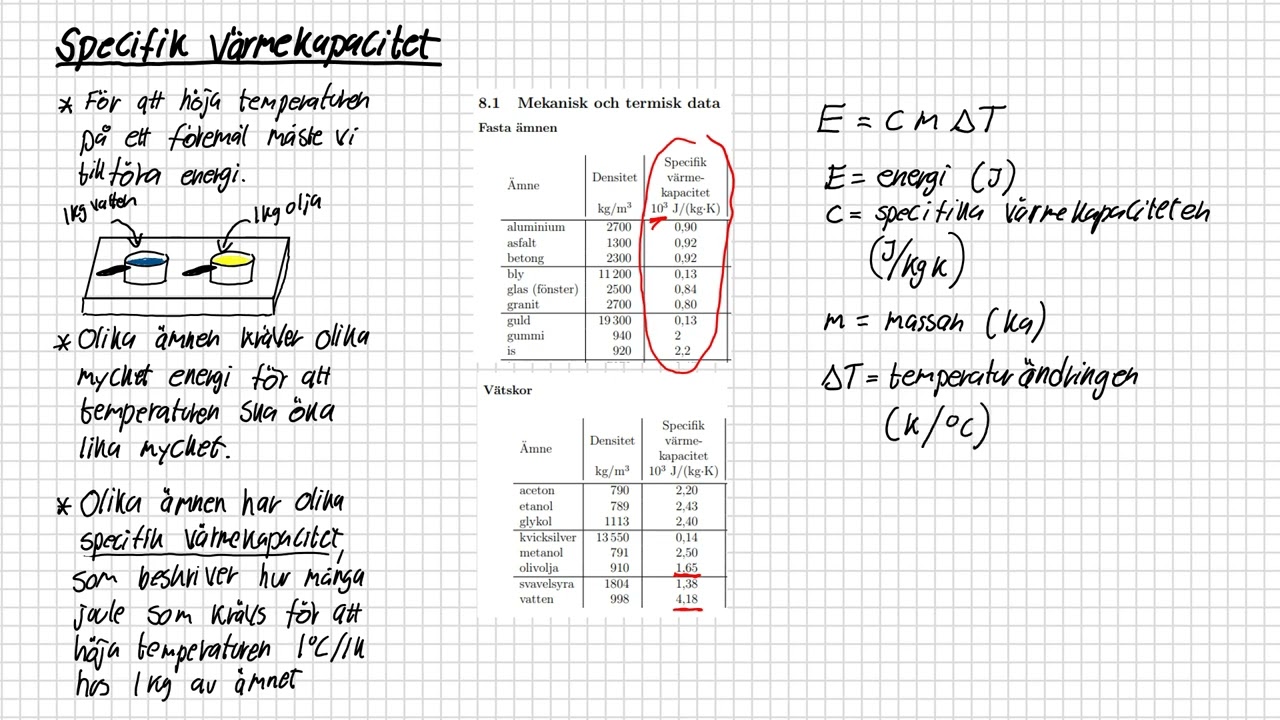 Specifik värmekapacitet
* För att höja temperaturen
på ett föremål måste vi
tillföra energi.
1kg vatten
1kg olja
* Olika ämnen kräver olika
mycket energi för att
temperaturen ska öka
lika mycket.
* Olika ämnen har olika
specifik värmekapacitet,
som beskriver hur många
joule som krävs för att
höja temperaturen 1°C/1K
hos 1kg av ämnet
8.1 Mekanisk och termisk data
Fasta ämnen
Specifik
värme-
Ämne Densitet kapacitet
kg/m³ 10³ J/(kg·K)
aluminium 2700 0,90
asfalt 1300 0,92
betong 2300 0,92
bly 11 200 0,13
glas (fönster) 2500 0,84
granit 2700 0,80
guld 19 300 0,13
gummi 940 2
is 920 2,2
Vätskor
Specifik
värme-
Ämne Densitet kapacitet
kg/m³ 10³ J/(kg·K)
aceton 790 2,20
etanol 789 2,43
glykol 1113 2,40
kvicksilver 13 550 0,14
metanol 791 2,50
olivolja 910 1,65
svavelsyra 1804 1,38
vatten 998 4,18
E = c m ΔT
E = energi (J)
c = specifika värmekapaciteten
(J/kg K)
m = massan (kg)
ΔT = temperaturändringen
(K/°C)